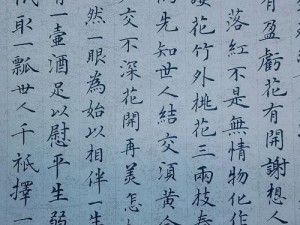 有盈虧花有開謝想人
落紅不是無情物化作
護花竹外桃花三兩枝春
先知世人結交須黃金
交不深花開再美怎
然一眼為始以相伴一生
有一壺酒足以慰平生弱
取一瓢世人千祇擇一